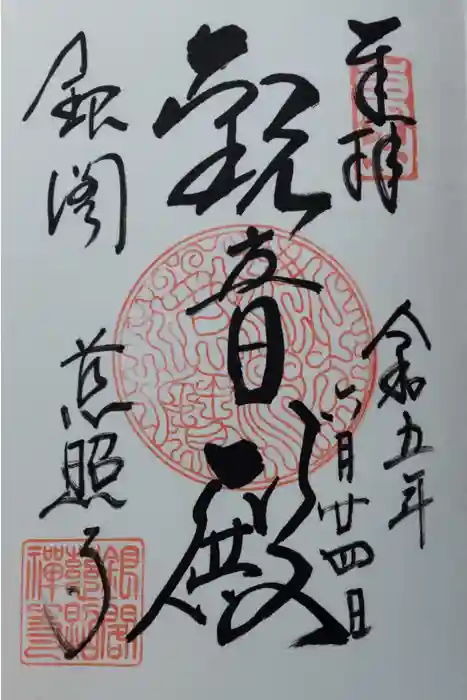 奉拝
令和五年
六月廿四日
觀音殿
銀閣
慈照寺
銀閣
慈照
禅寺